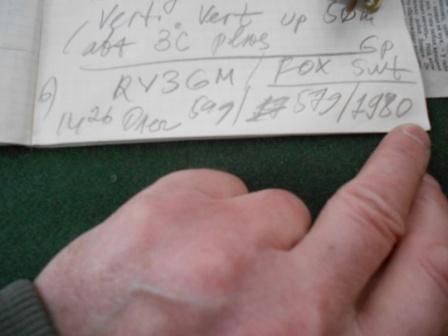 Vert. Vert up 50m
(abt 3C plms Gp
6) RV3GM / FOX Swt
14 26 Oleg 599 / 579 / 1980